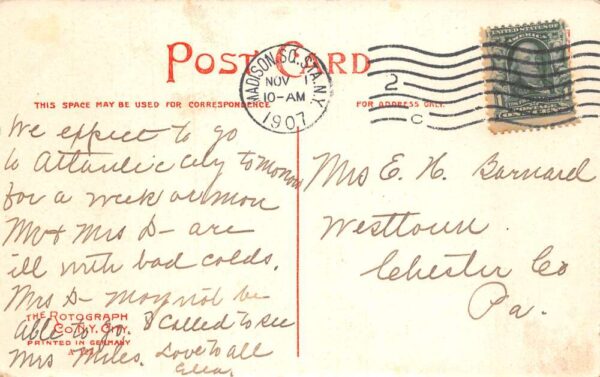 POST CARD
THIS SPACE MAY BE USED FOR CORRESPONDENCE
FOR ADDRESS ONLY.
MADISON SQ. STA. N.Y.
NOV
10-AM
1907
2
C
UNITED STATES OF
AMERICA
We expect to go
to Atlantic City to morrow
for a week or more
Mr & Mrs D- are
ill with bad colds.
Mrs D- may not be
able to go. I called to see
Mrs Miles. Love to all
Ella.
THE ROTOGRAPH
CO. N.Y. CITY.
PRINTED IN GERMANY
Mrs E. H. Barnard
Westtown
Chester Co
Pa.